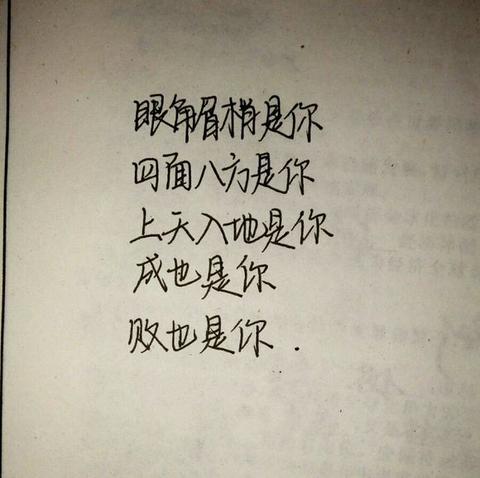 眼角眉梢是你
四面八方是你
上天入地是你
成也是你
败也是你.